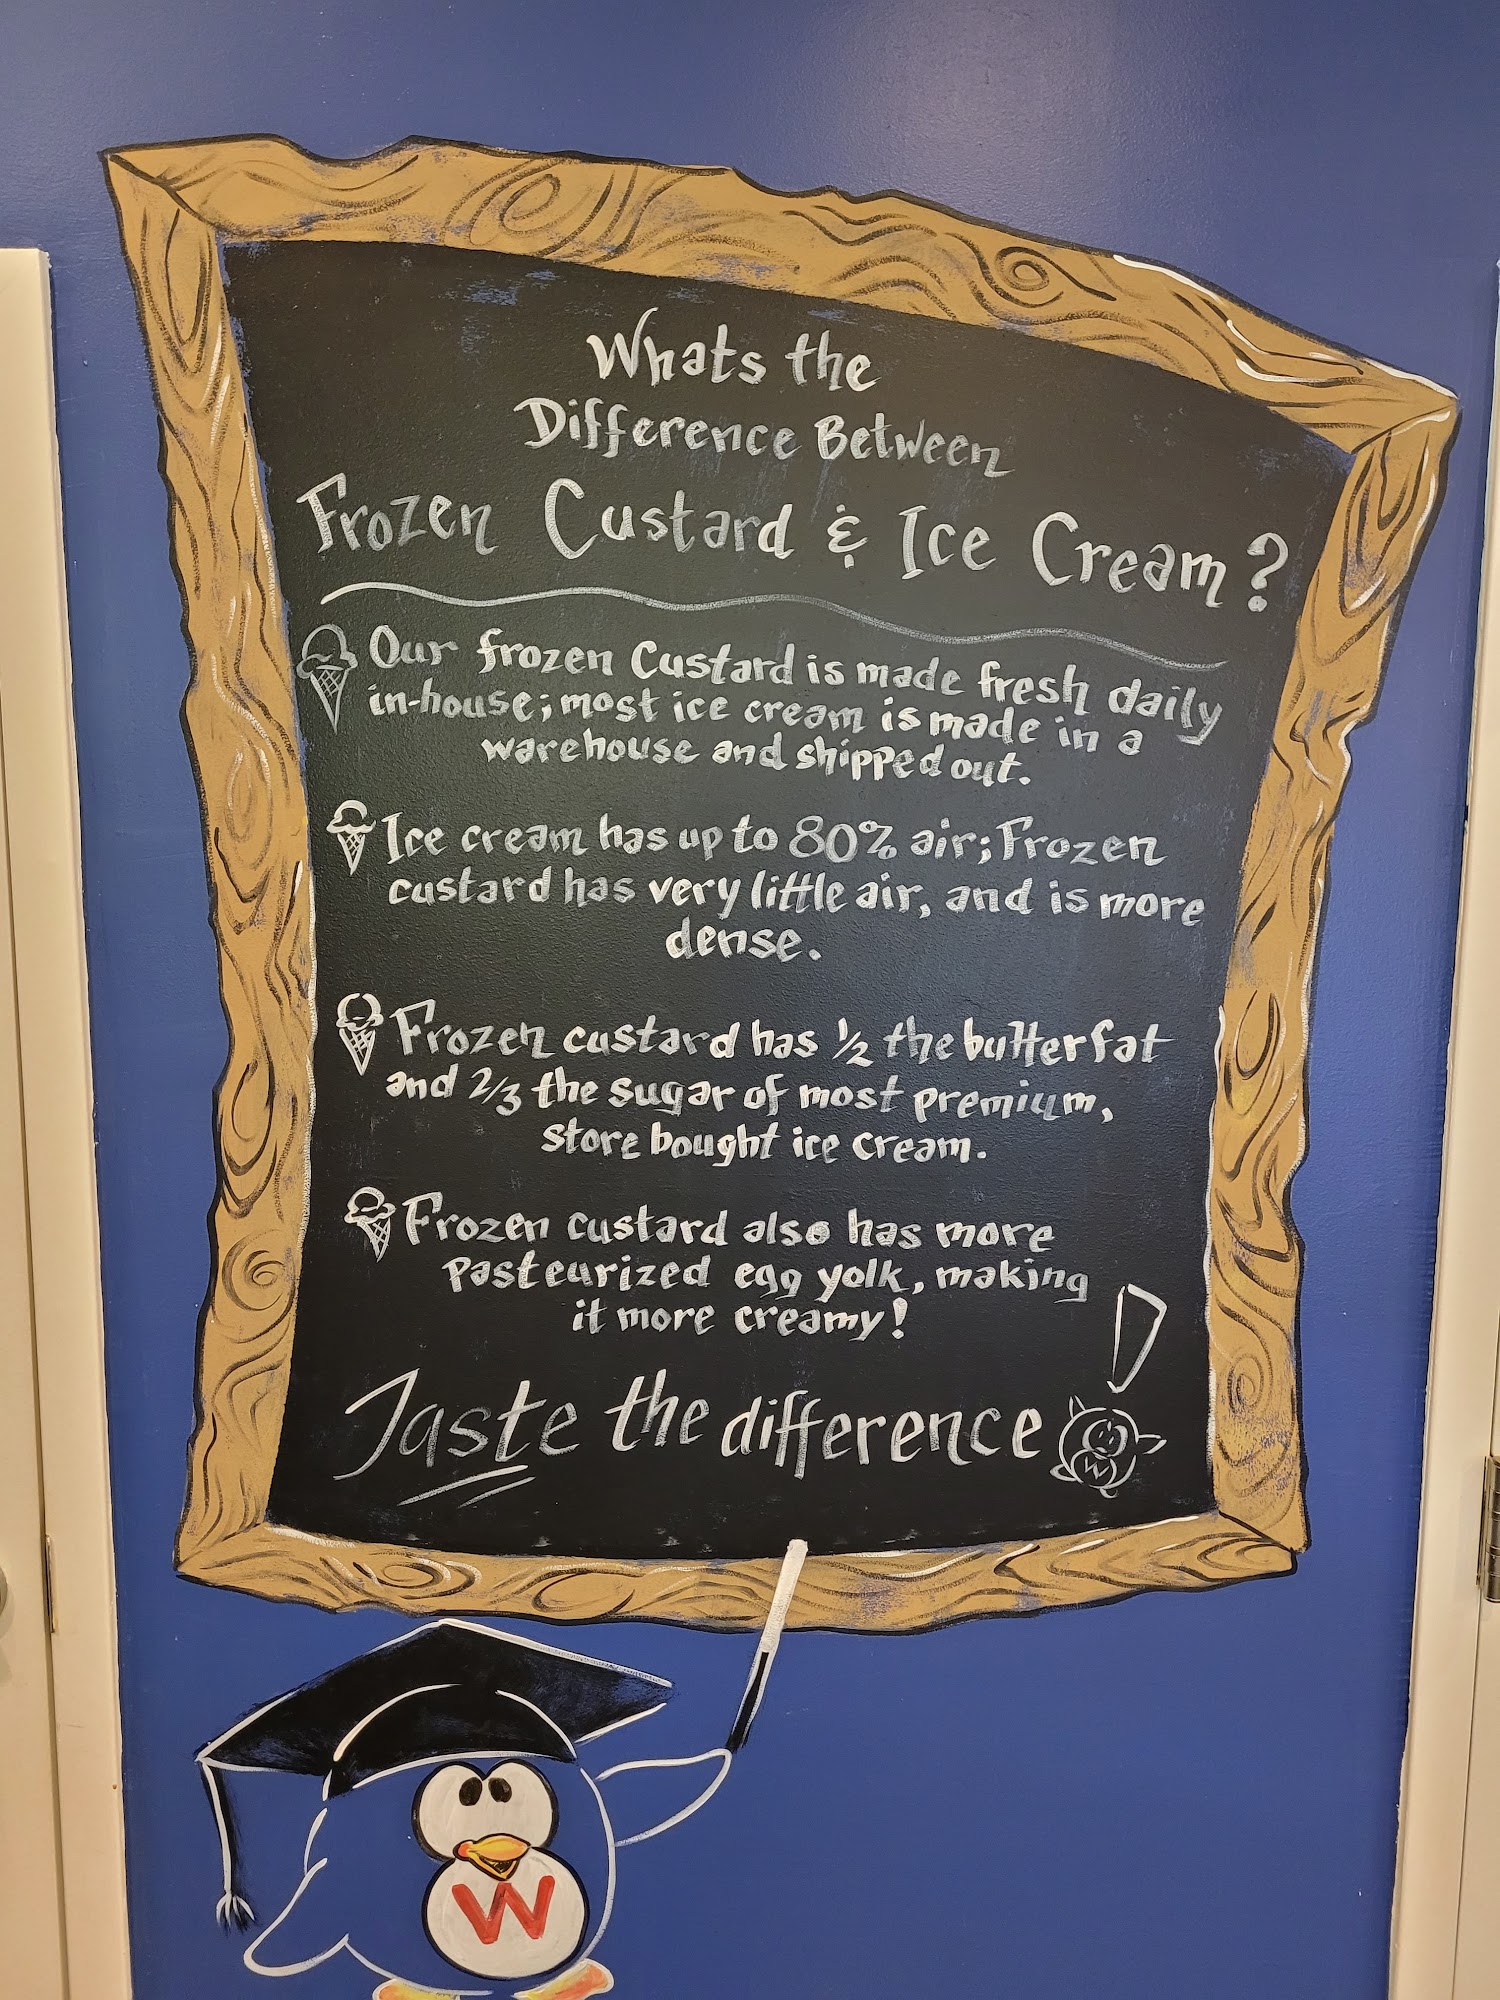 Whats the
Difference Between
Frozen Custard & Ice Cream?
Our frozen Custard is made fresh daily
in-house; most ice cream is made in a
warehouse and shipped out.
Ice cream has up to 80% air; Frozen
custard has very little air, and is more
dense.
Frozen custard has ½ the butterfat
and 2/3 the sugar of most premium,
store bought ice cream.
Frozen custard also has more
pasteurized egg yolk, making
it more creamy!
Taste the difference!
W
W